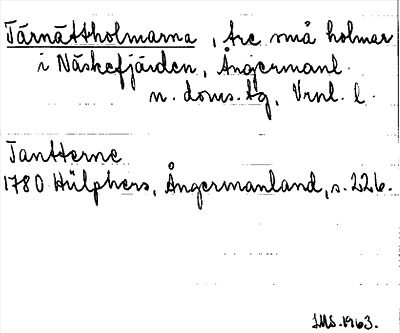 Tärnättholmarna, tre små holmar
i Näskefjärden, Ångermanl.
n. doms.tg, Vrnl. l.
Tantterne
1780 Hülphers, Ångermanland, s. 226.
IMS. 1963.